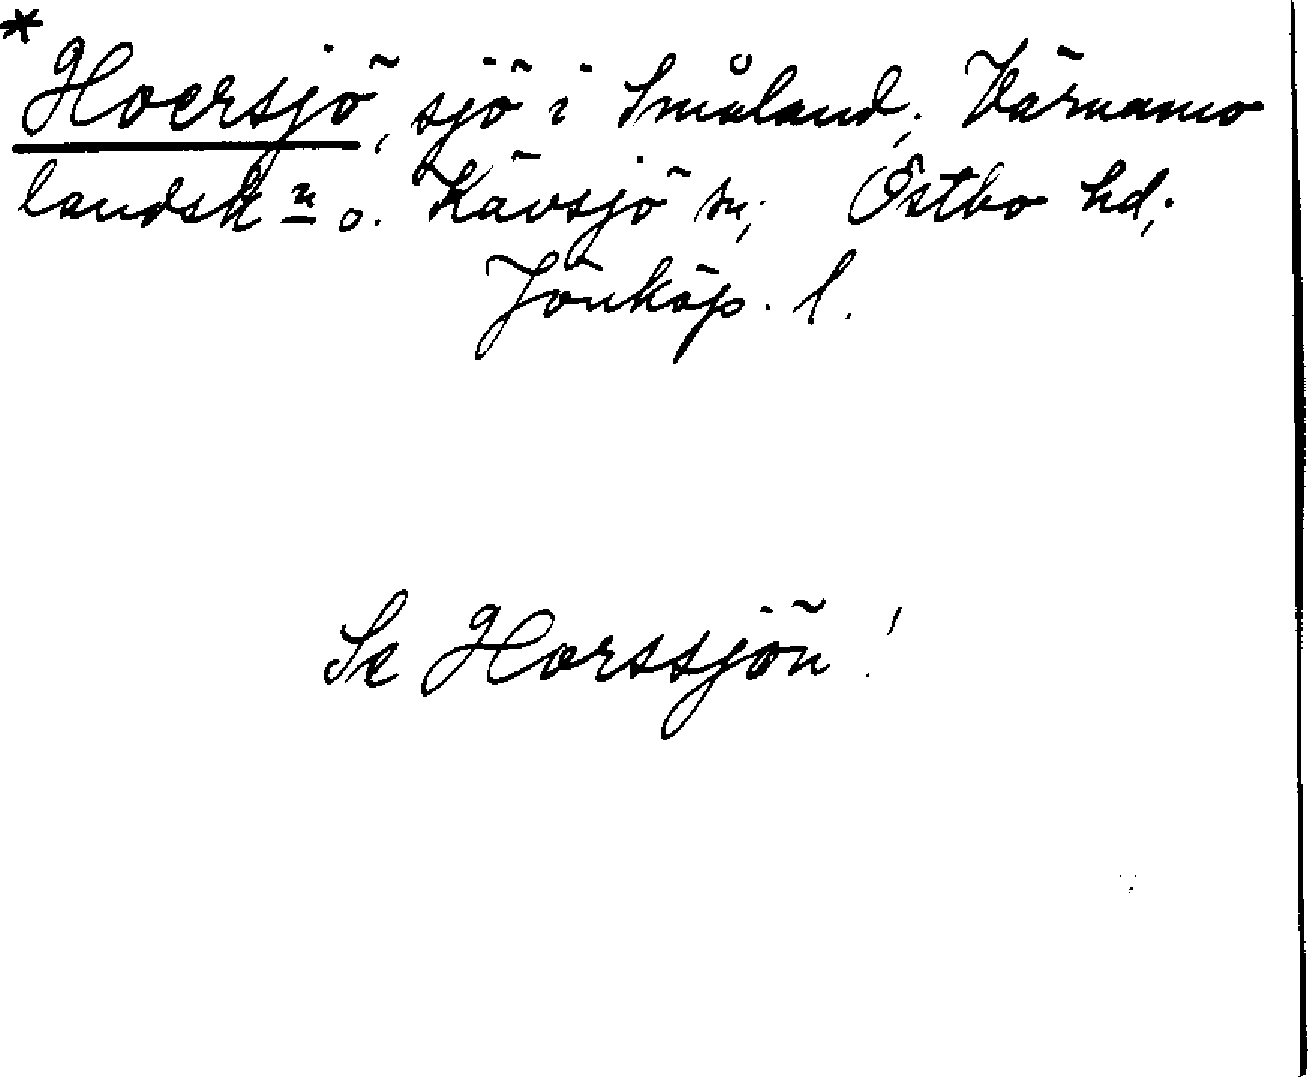 * Hoersjö, sjö i Småland; Värnamo
landsk:n o. Kävsjö sn; Östbo hd;
Jönköp. l.
Se Horssjön!